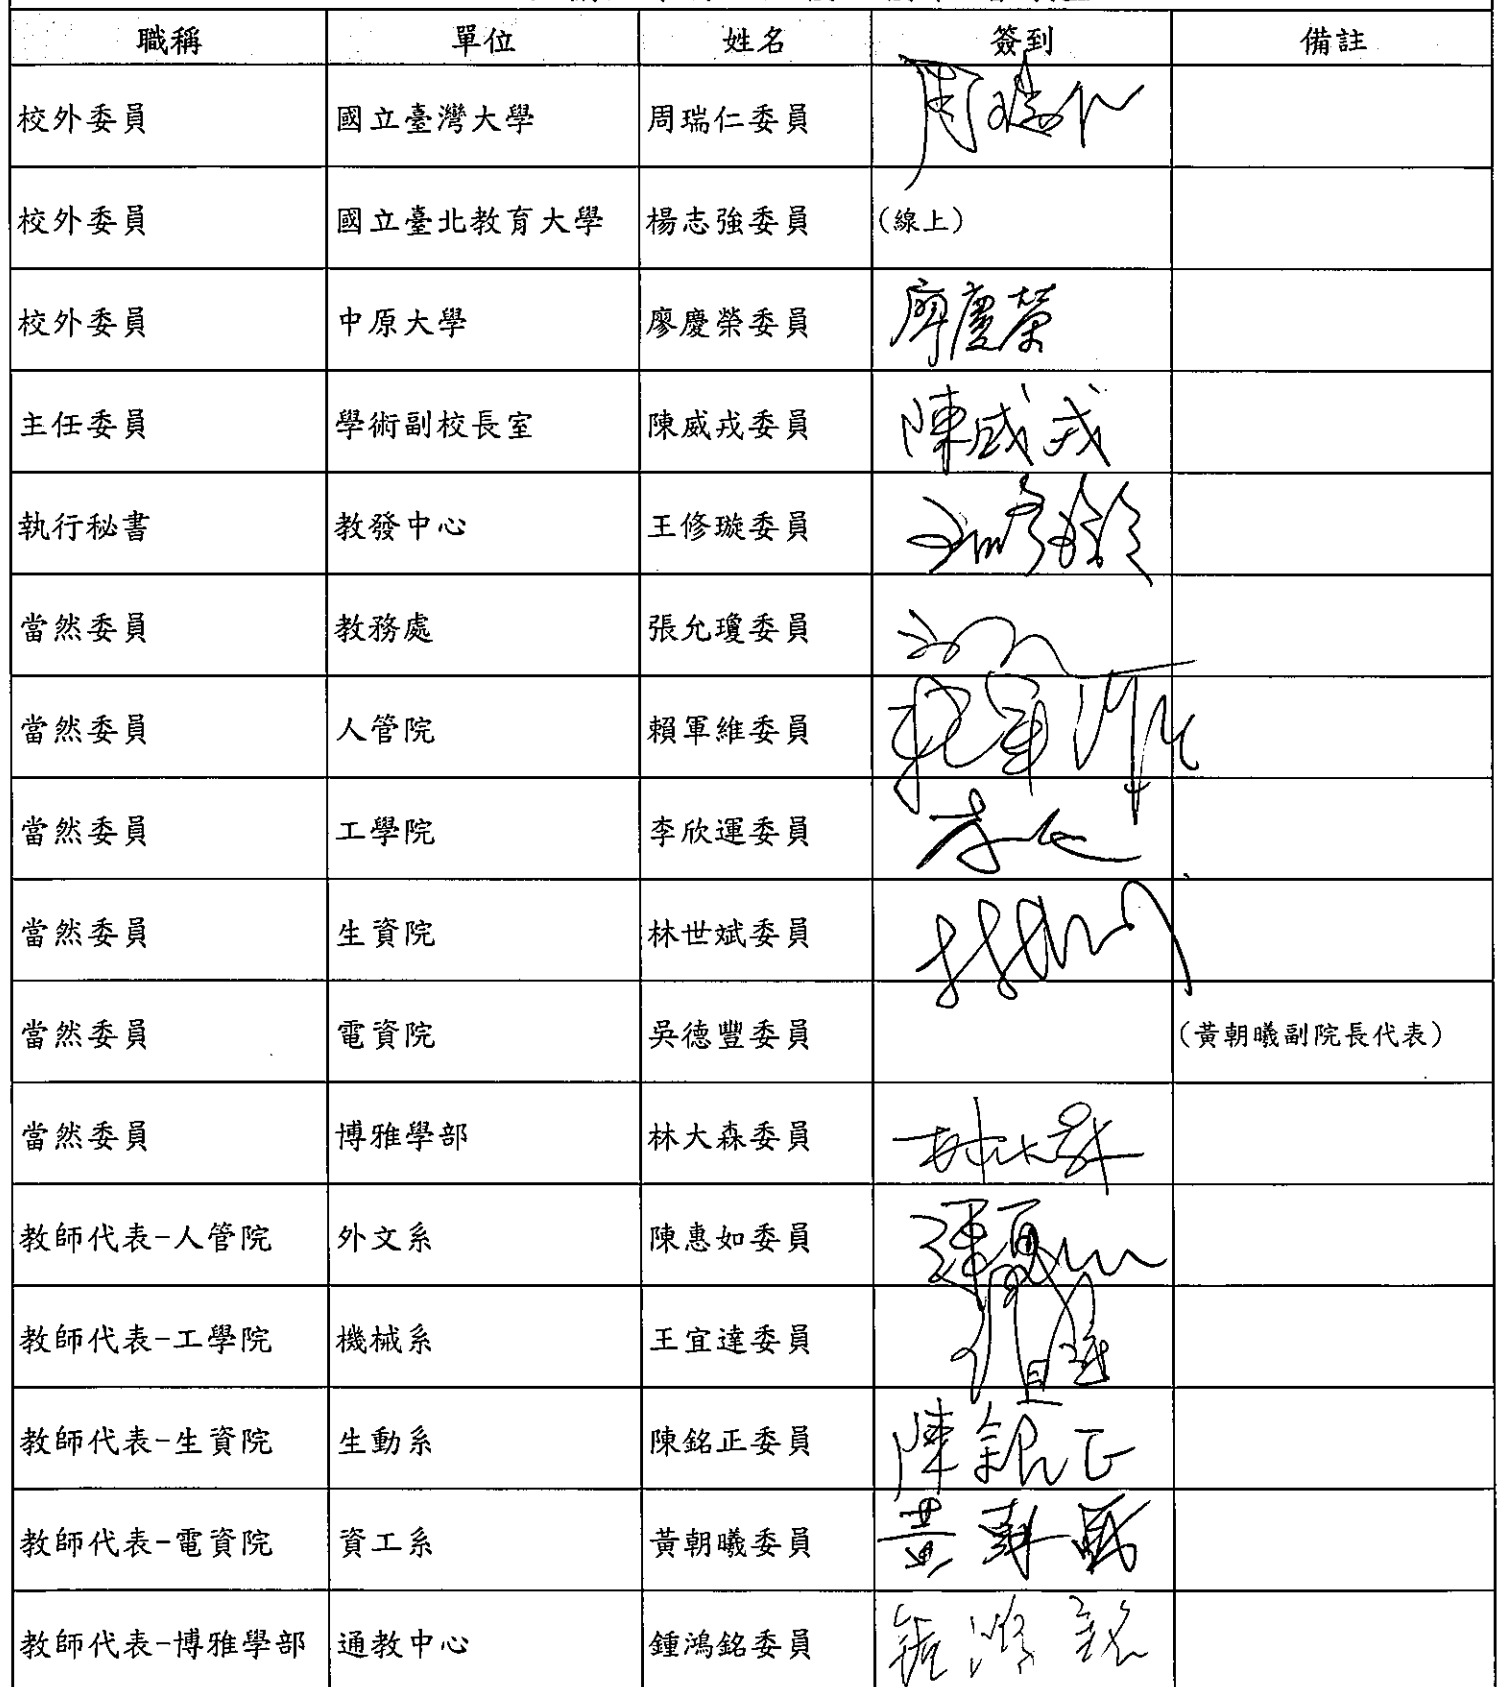 職稱 單位 姓名 簽到 備註
校外委員 國立臺灣大學 周瑞仁委員 周瑞仁
校外委員 國立臺北教育大學 楊志強委員 (線上)
校外委員 中原大學 廖慶榮委員 廖慶榮
主任委員 學術副校長室 陳威戎委員 陳威戎
執行秘書 教發中心 王修璇委員
當然委員 教務處 張允瓊委員
當然委員 人管院 賴軍維委員
當然委員 工學院 李欣運委員
當然委員 生資院 林世斌委員
當然委員 電資院 吳德豐委員 (黃朝曦副院長代表)
當然委員 博雅學部 林大森委員 林大森
教師代表-人管院 外文系 陳惠如委員
教師代表-工學院 機械系 王宜達委員
教師代表-生資院 生動系 陳銘正委員 陳銘正
教師代表-電資院 資工系 黃朝曦委員 黃朝曦
教師代表-博雅學部 通教中心 鍾鴻銘委員 鍾鴻銘